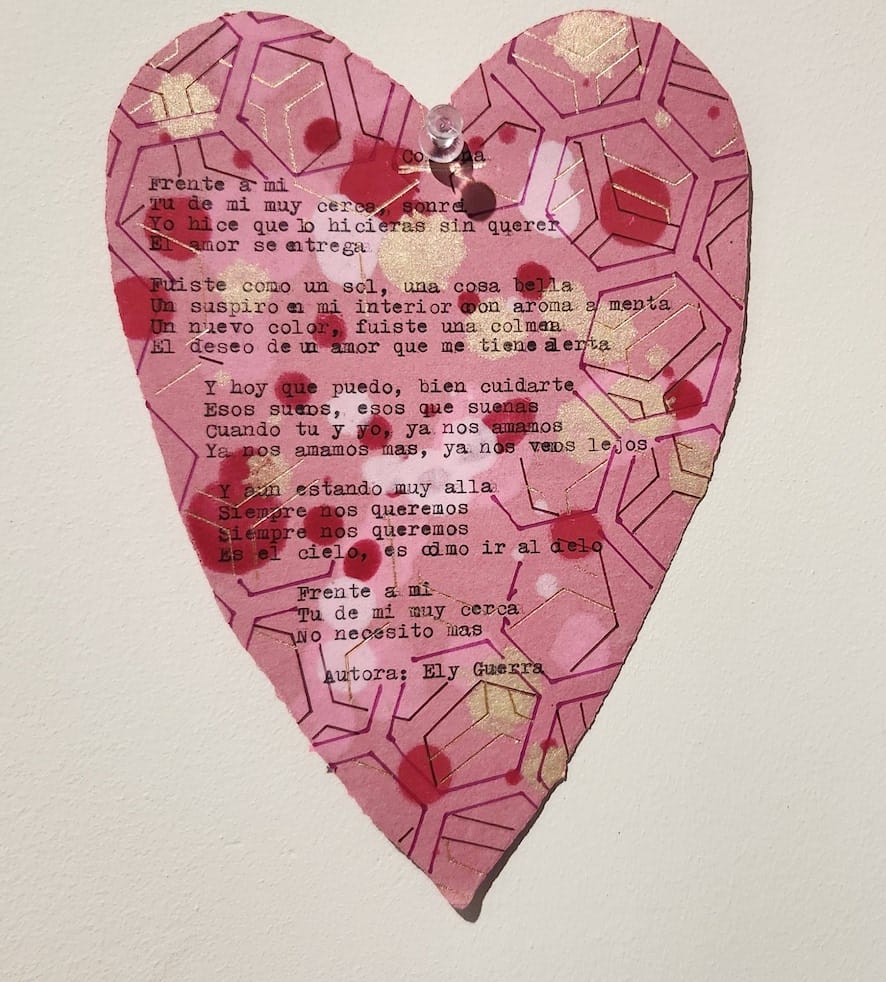 Frente a mi
Tu de mi muy cerca, sonrei
Yo hice que lo hicieras sin querer
El amor se entrega
Fuiste como un sol, una cosa bella
Un suspiro en mi interior con aroma a menta
Un nuevo color, fuiste una colmena
El deseo de un amor que me tiene alerta
Y hoy que puedo, bien cuidarte
Esos suenos, esos que suenas
Cuando tu y yo, ya nos amamos
Ya nos amamos mas, ya nos vemos lejos
Y aun estando muy alla
Siempre nos queremos
Siempre nos queremos
Es el cielo, es como ir al cielo
Frente a mi
Tu de mi muy cerca
No necesito mas
Autora: Ely Guerra